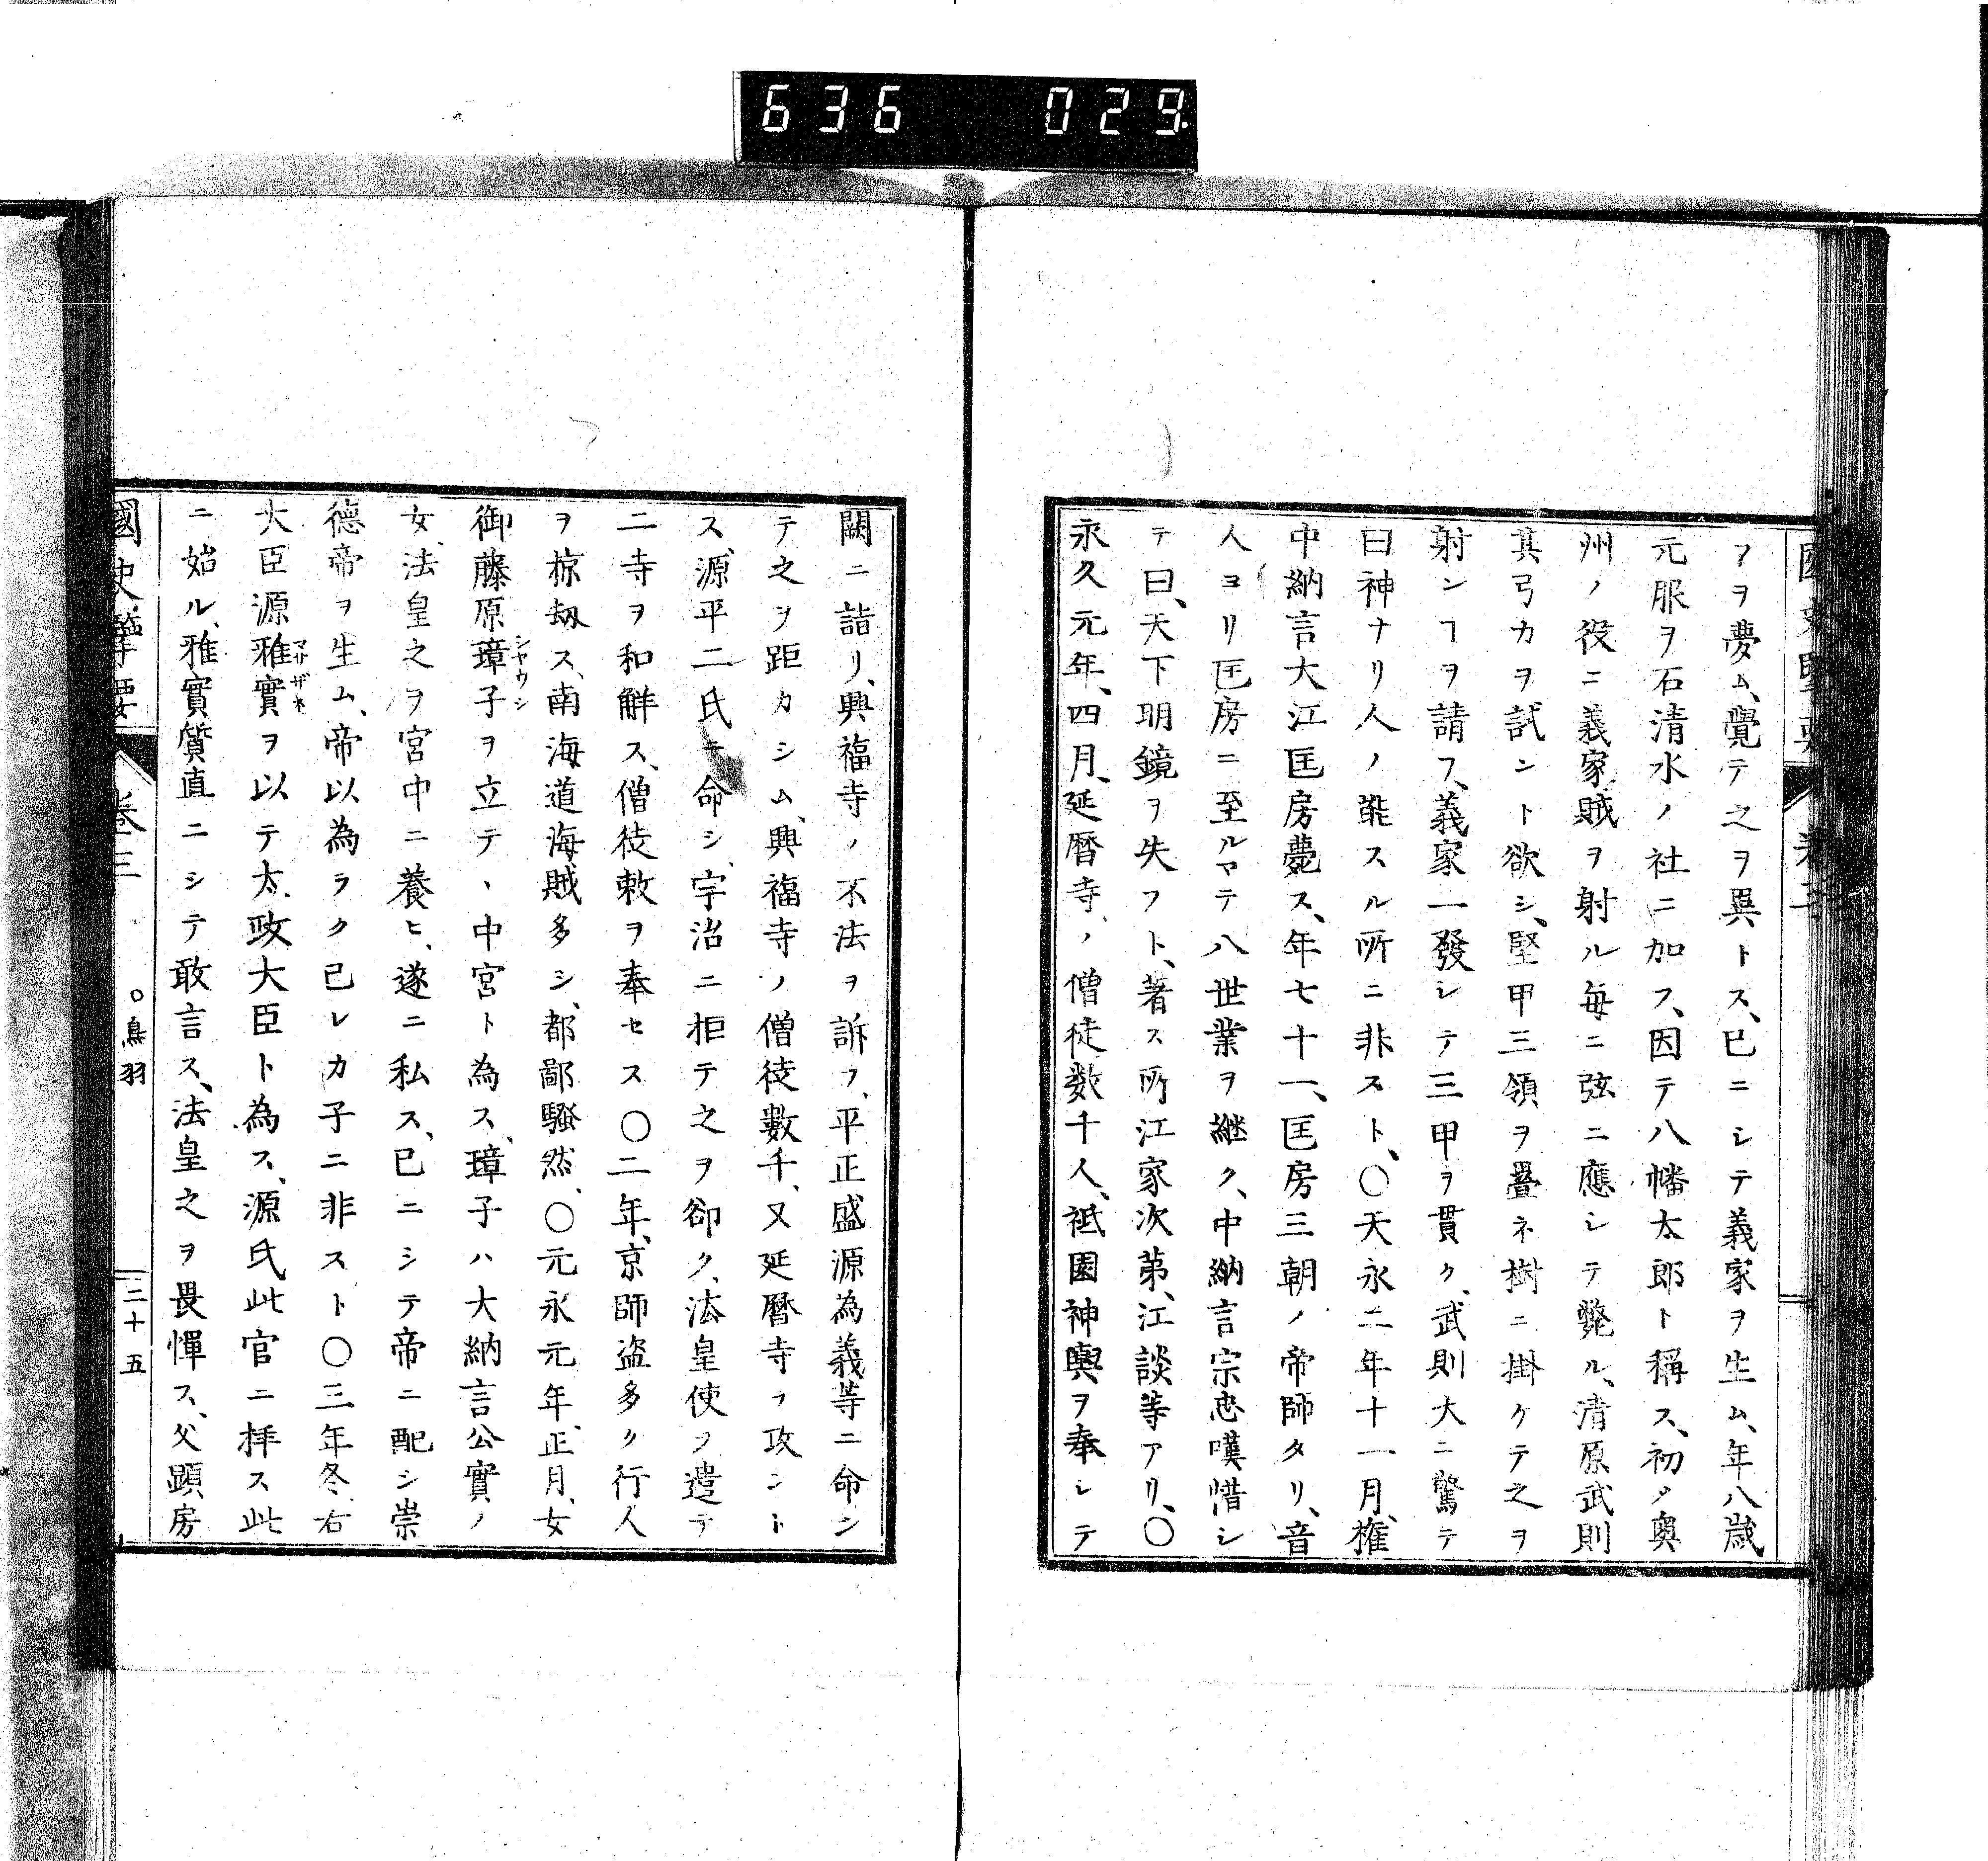 636 029
ヿヲ夢ム、覺テ之ヲ異トス、已ニシテ義家ヲ生ム、年八歳
元服ヲ石清水ノ社ニ加フ、因テ八幡太郎ト稱ス、初メ奥
州ノ役ニ義家、賊ヲ射ル毎ニ弦ニ應シテ斃ル、清原武則
其弓力ヲ試ント欲シ、堅甲三領ヲ疊ネ樹ニ掛ケテ之ヲ
射ンヿヲ請フ、義家一發シテ三甲ヲ貫ク、武則大ニ驚テ
曰神ナリ人ノ能スル所ニ非スト、〇天永二年十一月、權
中納言大江匡房薨ス、年七十一、匡房三朝ノ帝師タリ、音
人ヨリ匡房ニ至ルマテ八世業ヲ継ク、中納言宗忠嘆惜シ
テ曰、天下明鏡ヲ失フト、著ス所江家次第、江談等アリ、〇
永久元年、四月、延暦寺ノ僧徒数千人、祗園神輿ヲ奉シテ
闕ニ詣リ、興福寺ノ不法ヲ訴フ、平正盛源為義等ニ命シ
テ之ヲ距カシム、興福寺ノ僧徒數千、又延暦寺ヲ攻ント
ス、源平二氏ニ命シ、宇治ニ拒テ之ヲ卻ク、法皇使ヲ遣テ
二寺ヲ和解ス、僧徒敕ヲ奉セス〇二年、京師盗多ク行人
ヲ掠刧ス、南海道海賊多シ、都鄙騒然、〇元永元年、正月、女
御藤原璋子シヤウシヲ立テ、中宮ト為ス、璋子ハ大納言公實ノ
女、法皇之ヲ宮中ニ養ヒ、遂ニ私ス、已ニシテ帝ニ配シ崇
德帝ヲ生ム、帝以為ラク已レカ子ニ非スト〇三年冬、右
大臣源雅實マサザネヲ以テ太政大臣ト為ス、源氏此官ニ拝ス此
ニ始ル、雅實質直ニシテ敢言ス、法皇之ヲ畏憚ス、父顕房
國史擥要 巻三 〇鳥羽 二十五